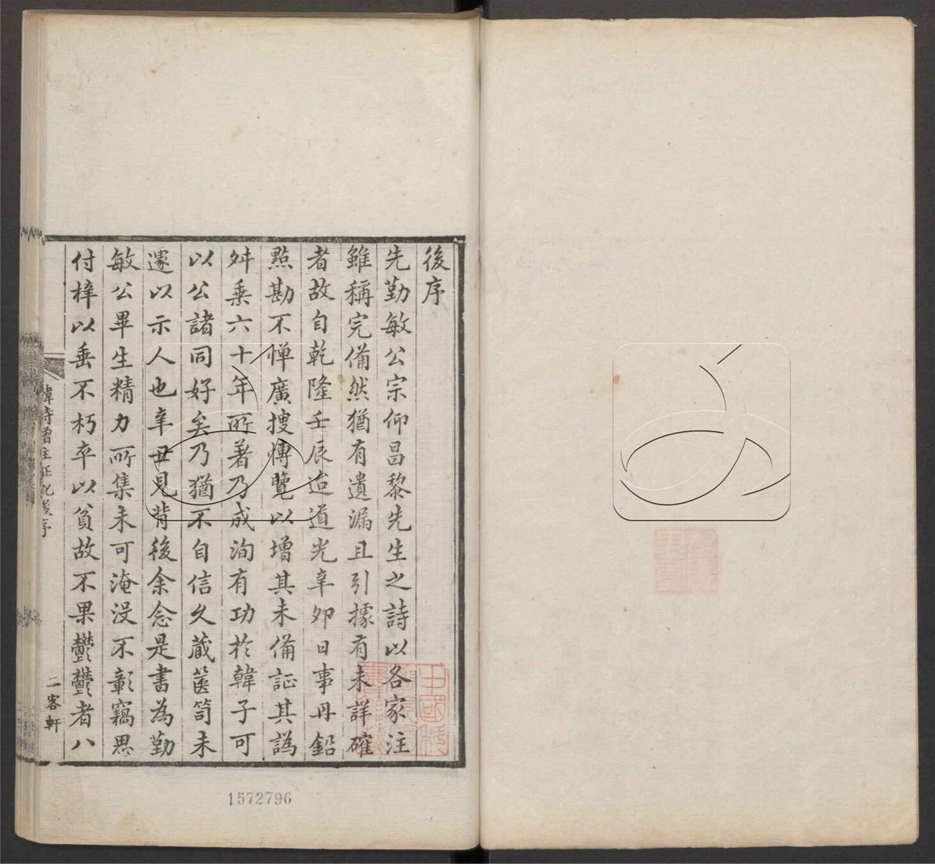 後序
先勤敏公宗仰昌黎先生之詩以各家注
雖稱完備然猶有遺漏且引據有未詳確
者故自乾隆壬辰迨道光辛卯日事丹鉛
點勘不憚廣搜慱覽以增其未備証其譌
舛乗六十年所著乃成洵有功扵韓子可
以公諸同好矣乃猶不自信久蔵篋笥未
遽以示人也辛丑見背後余念是書為勤
敏公畢生精力所集未可淹沒不彰竊思
付梓以垂不朽卒以貧故不果鬱鬱者八
韓詩增註証訛後序
二客軒
1572796